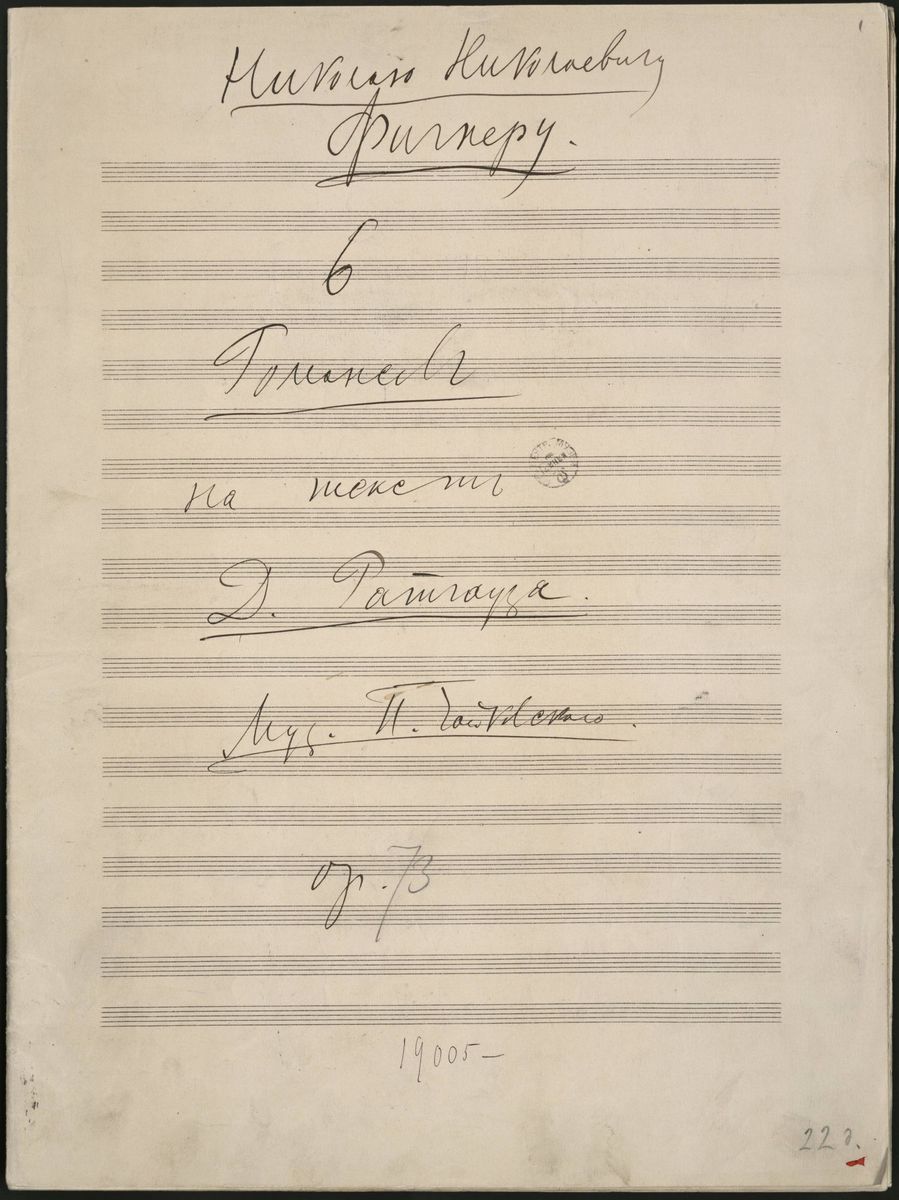 Николаю Николаевичу
Фигнеру.
6
Романсовъ
на тексты
Д. Ратгауза.
Муз. П. Чайковскаго.
op. 73
19005 —
22 д.